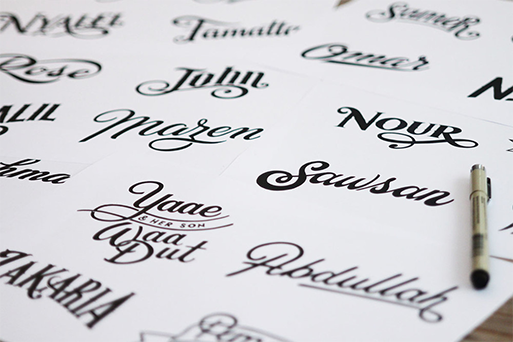 Tamatte
Samer
Rose
John
Omar
Maren
Nour
Sawsan
Yaae
& HER SON
Waa
Dut
Abdullah
ZAKARIA